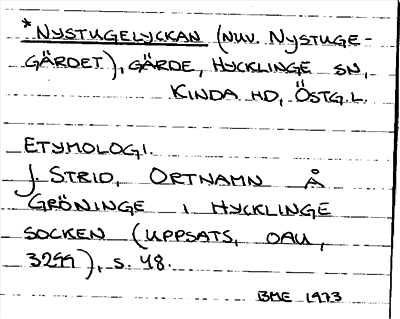 *NYSTUGELYCKAN (NUV. NYSTUGE-
GÄRDET), GÄRDE, HYCKLINGE SN,
KINDA HD, ÖSTG.L.
ETYMOLOGI.
J. STRID, ORTNAMN Å
GRÖNINGE I HYCKLINGE
SOCKEN (UPPSATS, OAU,
3299), s. 48.
BME 1973